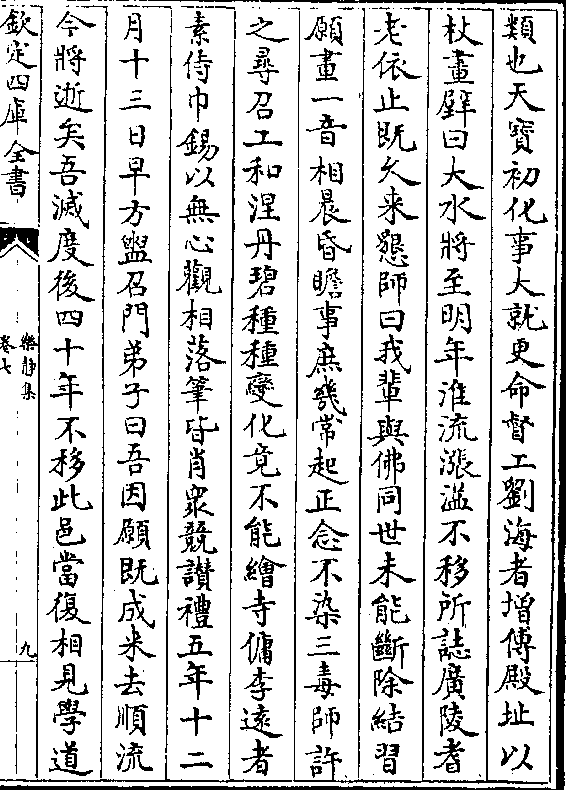 類也天寳初化事大就更命督工劉海者増傅殿址以
杖畫壁曰大水將至明年淮流漲溢不移所誌廣陵耆
老依止既久来懇師曰我輩與佛同世未能斷除結習
願畫一音相晨昏瞻事庶幾常起正念不染三毒師許
之尋召工和涅丹碧種種變化竟不能繪寺傭李遠者
素侍巾錫以無心觀相落筆皆肖衆競讃禮五年十二
月十三日早方盥召門弟子曰吾因願既成来去順流
今將逝矣吾滅度後四十年不移此邑當復相見學道
欽定四庫全書
樂静集
卷七
九